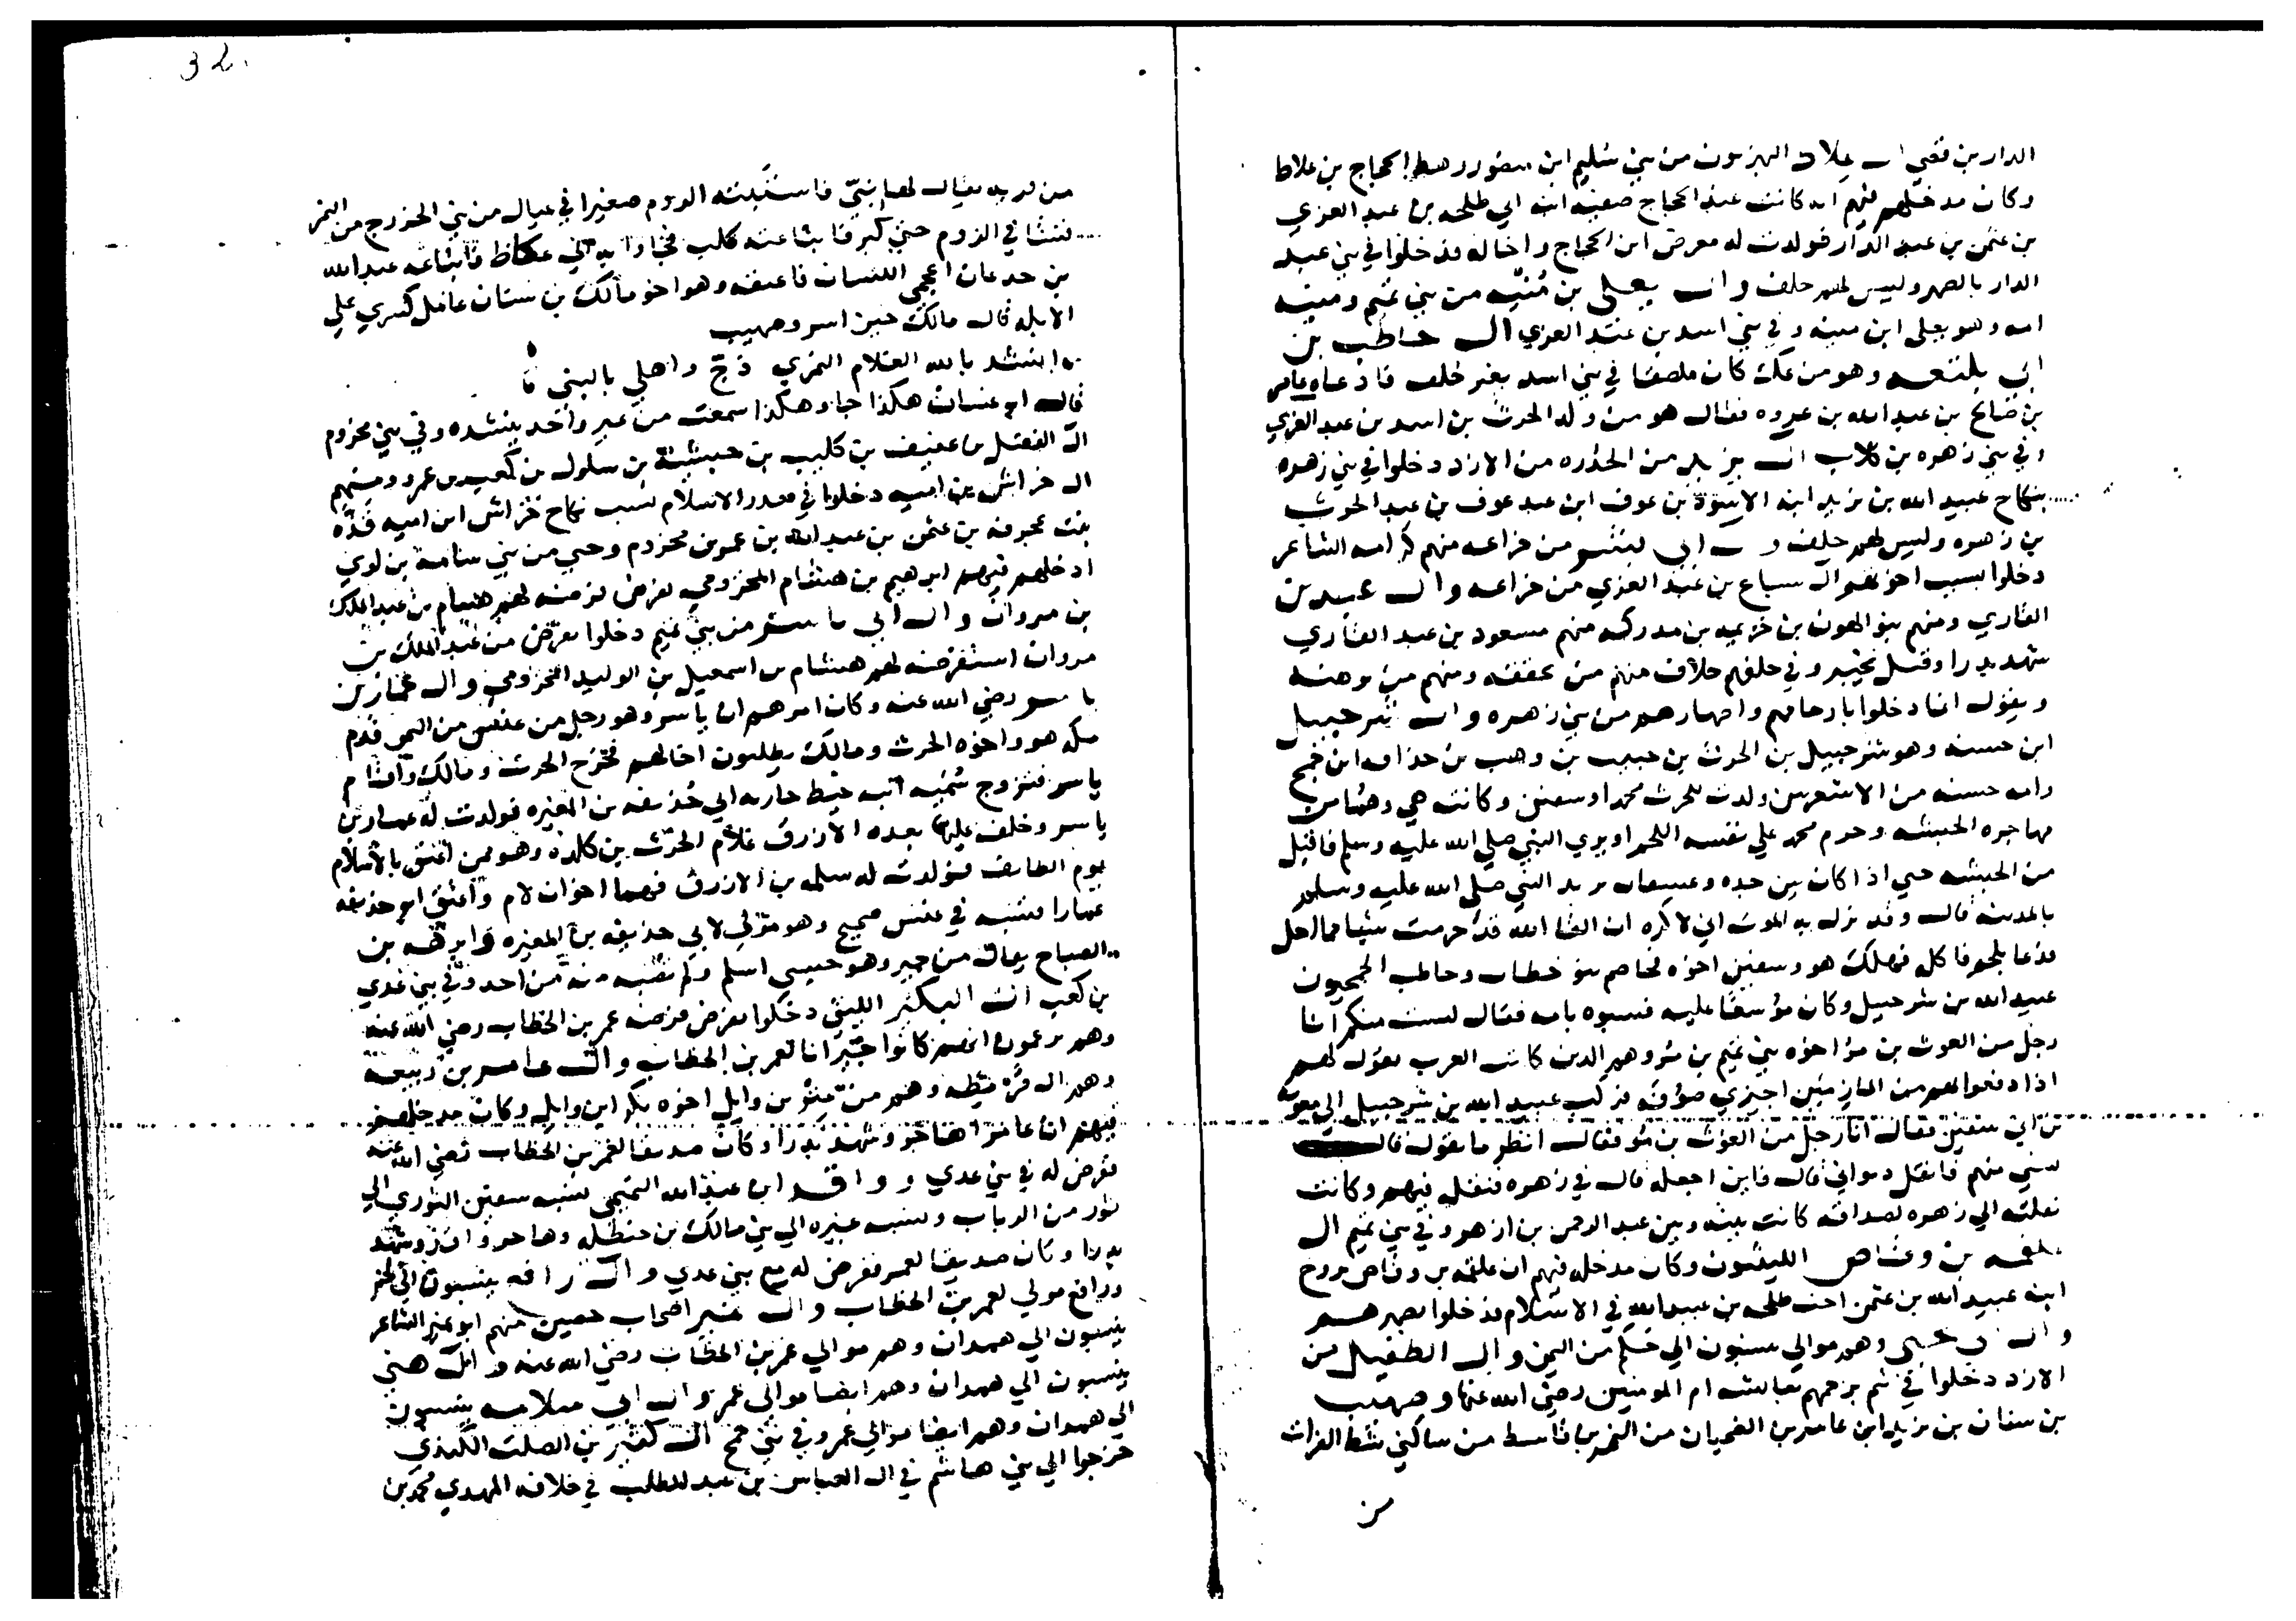 الدار بن قصي ال علاط البهزيون من بني سليم ابن منصور رهط الحجاج بن علاط
وكان مدخلهم فيهم انه كانت عند الحجاج صفيه ابنه ابي طلحه بن عبد العزي
بن عثمن بن عبد الدار فولدت له معرض ابن الحجاج واخا له فدخلوا في بني عبد
الدار بالصهر وليس لهم حلف وال يعلى بن منيه من بني تميم ومنيه
امه وهو يعلى ابن منيه وفي بني اسد بن عبد العزي ال حاطب بن
ابي بلتعه وهو من عك كان ملصقا في بني اسد بغير حلف فادعاه عامر
بن صالح بن عبد الله بن عروه فقال هو من ولد الحرث بن اسد بن عبد العزي
وفي بني زهره بن كلاب ال يزيد من الجدره من الازد دخلوا في بني زهره
بنكاح عبيد الله بن يزيد ابنه الاسود بن عوف ابن عبد عوف بن عبد الحرث
بن زهره وليس لهم حلف و ال ابي من خزاعه منهم الشاعر
دخلوا بسبب اخوتهم ال سباع بن عبد العزي من خزاعه وال عبد بن
القاري ومنهم بنو الهون بن خزيمه بن مدركه منهم مسعود بن عبد القاري
شهد بدرا وقتل بخيبر وفي حلفهم خلاف منهم من يحققه ومنهم من يوهنه
ويقول انما دخلوا بارحامهم واصهارهم من بني زهره وال شرحبيل
ابن حسنه وهو شرحبيل بن الحرث بن حبيب بن وهب بن حذافه ابن جمح
وامه حسنه من الاشعريين ولدت للحرث محمدا وسفين وكانت هي وهما من
مهاجره الحبشه وحرم محمد علي نفسه اللحم او يري النبي صلي الله عليه وسلم فاقبل
من الحبشه حتي اذا كان بين جده وعسفان يريد النبي صلي الله عليه وسلم
بالمدينه قال وقد نزل به الموت اني لاكره ان القا الله قد حرمت شيا مما احل
فدعا بلحم فاكل فهلك هو وسفين اخوه فخاصم بنو خطاب وحاطب الجمحيون
عبيد الله بن شرحبيل وكان مؤسفا عليه فنسبوه بامه فقال لست منكم انا
رجل من الغوث بن مر اخوه بني تميم بن مر وهم الذين كانت العرب تقول لهم
اذا دفعوا بهم من المازمين اجيزي صوفه فركب عبيد الله بن شرحبيل الي معويه
بن ابي سفين فقال انا رجل من الغوث بن مر فقال انظر ما يقول قال
لستي منهم فانقل ديواني قال فاين اجعله قال في زهره فنقله فيهم وكانت
نقلته الي زهره لصداقه كانت بينه وبين عبد الرحمن بن ازهر وفي بني تميم ال
علقمه بن وقاص الليثيون وكان مدخله فيهم ان علقمه بن وقاص تزوج
ابنه عبيد الله بن عثمن اخت طلحه بن عبيد الله في الاسلام فدخلوا بصهرهم
وال وهم موالي ينسبون الي حكم من اليمن وال الطفيل من
الازد دخلوا في تيم برحمهم بعايشه ام المومنين رضي الله عنها وصهيب
بن سنان بن يزيد ابن عامر من الضحيان من النمر بن قاسط من ساكني شط الفرات
من
32
من قريه يقال لها فاستبته الروم صغيرا في عيال من بني الخزرج من النمر
فنشا في الروم حتي كبر فابتاعته كلب فجاوا به الي عكاظ فابتاعه عبد الله
بن جدعان اعجمي اللسان فاعتقه وهو اخو مالك بن سنان عامل كسري علي
الابله قال مالك حين اسر وصهيب
انشد بالله الغلام النمري دج واهلي بالبني
قال ابو غسان هكذا جا وهكذا سمعت من غير واحد ينشده وفي بني مخزوم
ال الفضل بن عفيف بن كليب بن حبشيه بن سلول بن كعب بن عمرو ومنهم
ال خراش بن اميه دخلوا في صدر الاسلام بسبب نكاح خراش ابن اميه
بنت بن عثمن بن عبد الله بن عمر بن مخزوم وحي من بني سامه بن لوي
ادخلهم فيهم ابرهيم بن هشام المخزومي بفرض فرضه لهم هشام بن عبد الملك
بن مروان وال ابي من بني تميم دخلوا بفرض من عبد الملك بن
مروان استفرضه لهم هشام بن اسمعيل بن الوليد المخزومي وال عمار بن
ياسر رضي الله عنه وكان امرهم ان ياسر وهو رجل من عنس من اليمن قدم
مكه هو واخوه الحرث ومالك يطلبون اخا لهم فخرج الحرث ومالك واقام
ياسر فتزوج سميه ابنه خبط جاريه ابي حذيفه بن المغيره فولدت له عمار بن
ياسر وخلف عليها بعده الازرق غلام الحرث بن كلده وهو ممن اعتق بالاسلام
يوم الطايف فولدت له سلمه بن الازرق فهما اخوان لام واعتق ابو حذيفه
عمارا فنسبه في عنس صحيح وهو مولي لابي حذيفه بن المغيره وابرهه بن
الصباح يقال من حمير وهو حبشي اسلم ولم نصبه منه من احد وفي بني عدي
بن كعب ال البكير الليثي دخلوا بفرض فرضه عمر بن الخطاب رضي الله عنه
وهم يزعمون انهم كانوا جيرانا لعمر بن الخطاب وال عامر بن ربيعه
وهم ال وهم من عنز بن وايل اخوه بكر ابن وايل وكان مدخلهم
فيهم ان عامرا هاجر وشهد بدرا وكان صديقا لعمر بن الخطاب رضي الله عنه
ففرض له في بني عدي وواقد ابن عبد الله التميمي نسبه سفين الثوري الي
ثور من الرباب ونسبه غيره الي بني مالك بن حنظله وهاجر وشهد
بدرا وكان صديقا لعمر ففرض له مع بني عدي وال رافع ينسبون الي لخم
ورافع مولي لعمر بن الخطاب وال اصحاب حصين منهم الشاعر
ينسبون الي همدان وهم موالي عمر بن الخطاب رضي الله عنه وال هني
ينسبون الي همدان وهم ايضا موالي عمر وال ابي سلامه ينسبون
الي همدان وهم ايضا موالي عمر وفي بني جمح ال كثير بن الصلت الكندي
خرجوا الي بني هاشم في ال العباس بن عبد المطلب في خلافه المهدي محمد بن